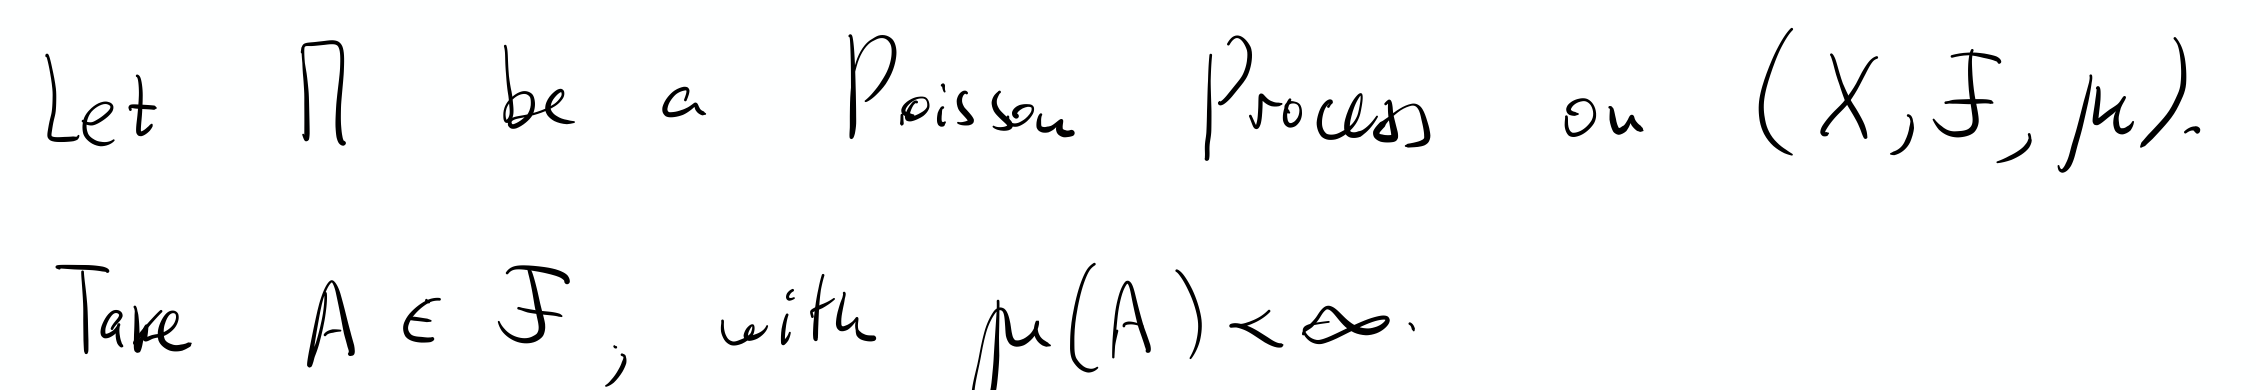 Let Π be a Poisson Process on (X, ℱ, μ).
Take A ∈ ℱ, with μ(A) < ∞.